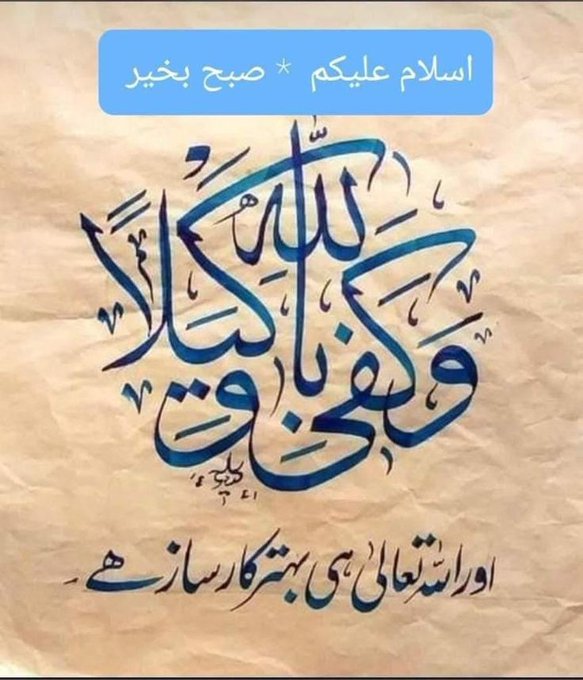 اسلام علیکم * صبح بخیر
وَكَفىٰ بِاللّٰهِ وَكِيلًا
اور اللہ تعالیٰ ہی بہتر کارساز ھے۔